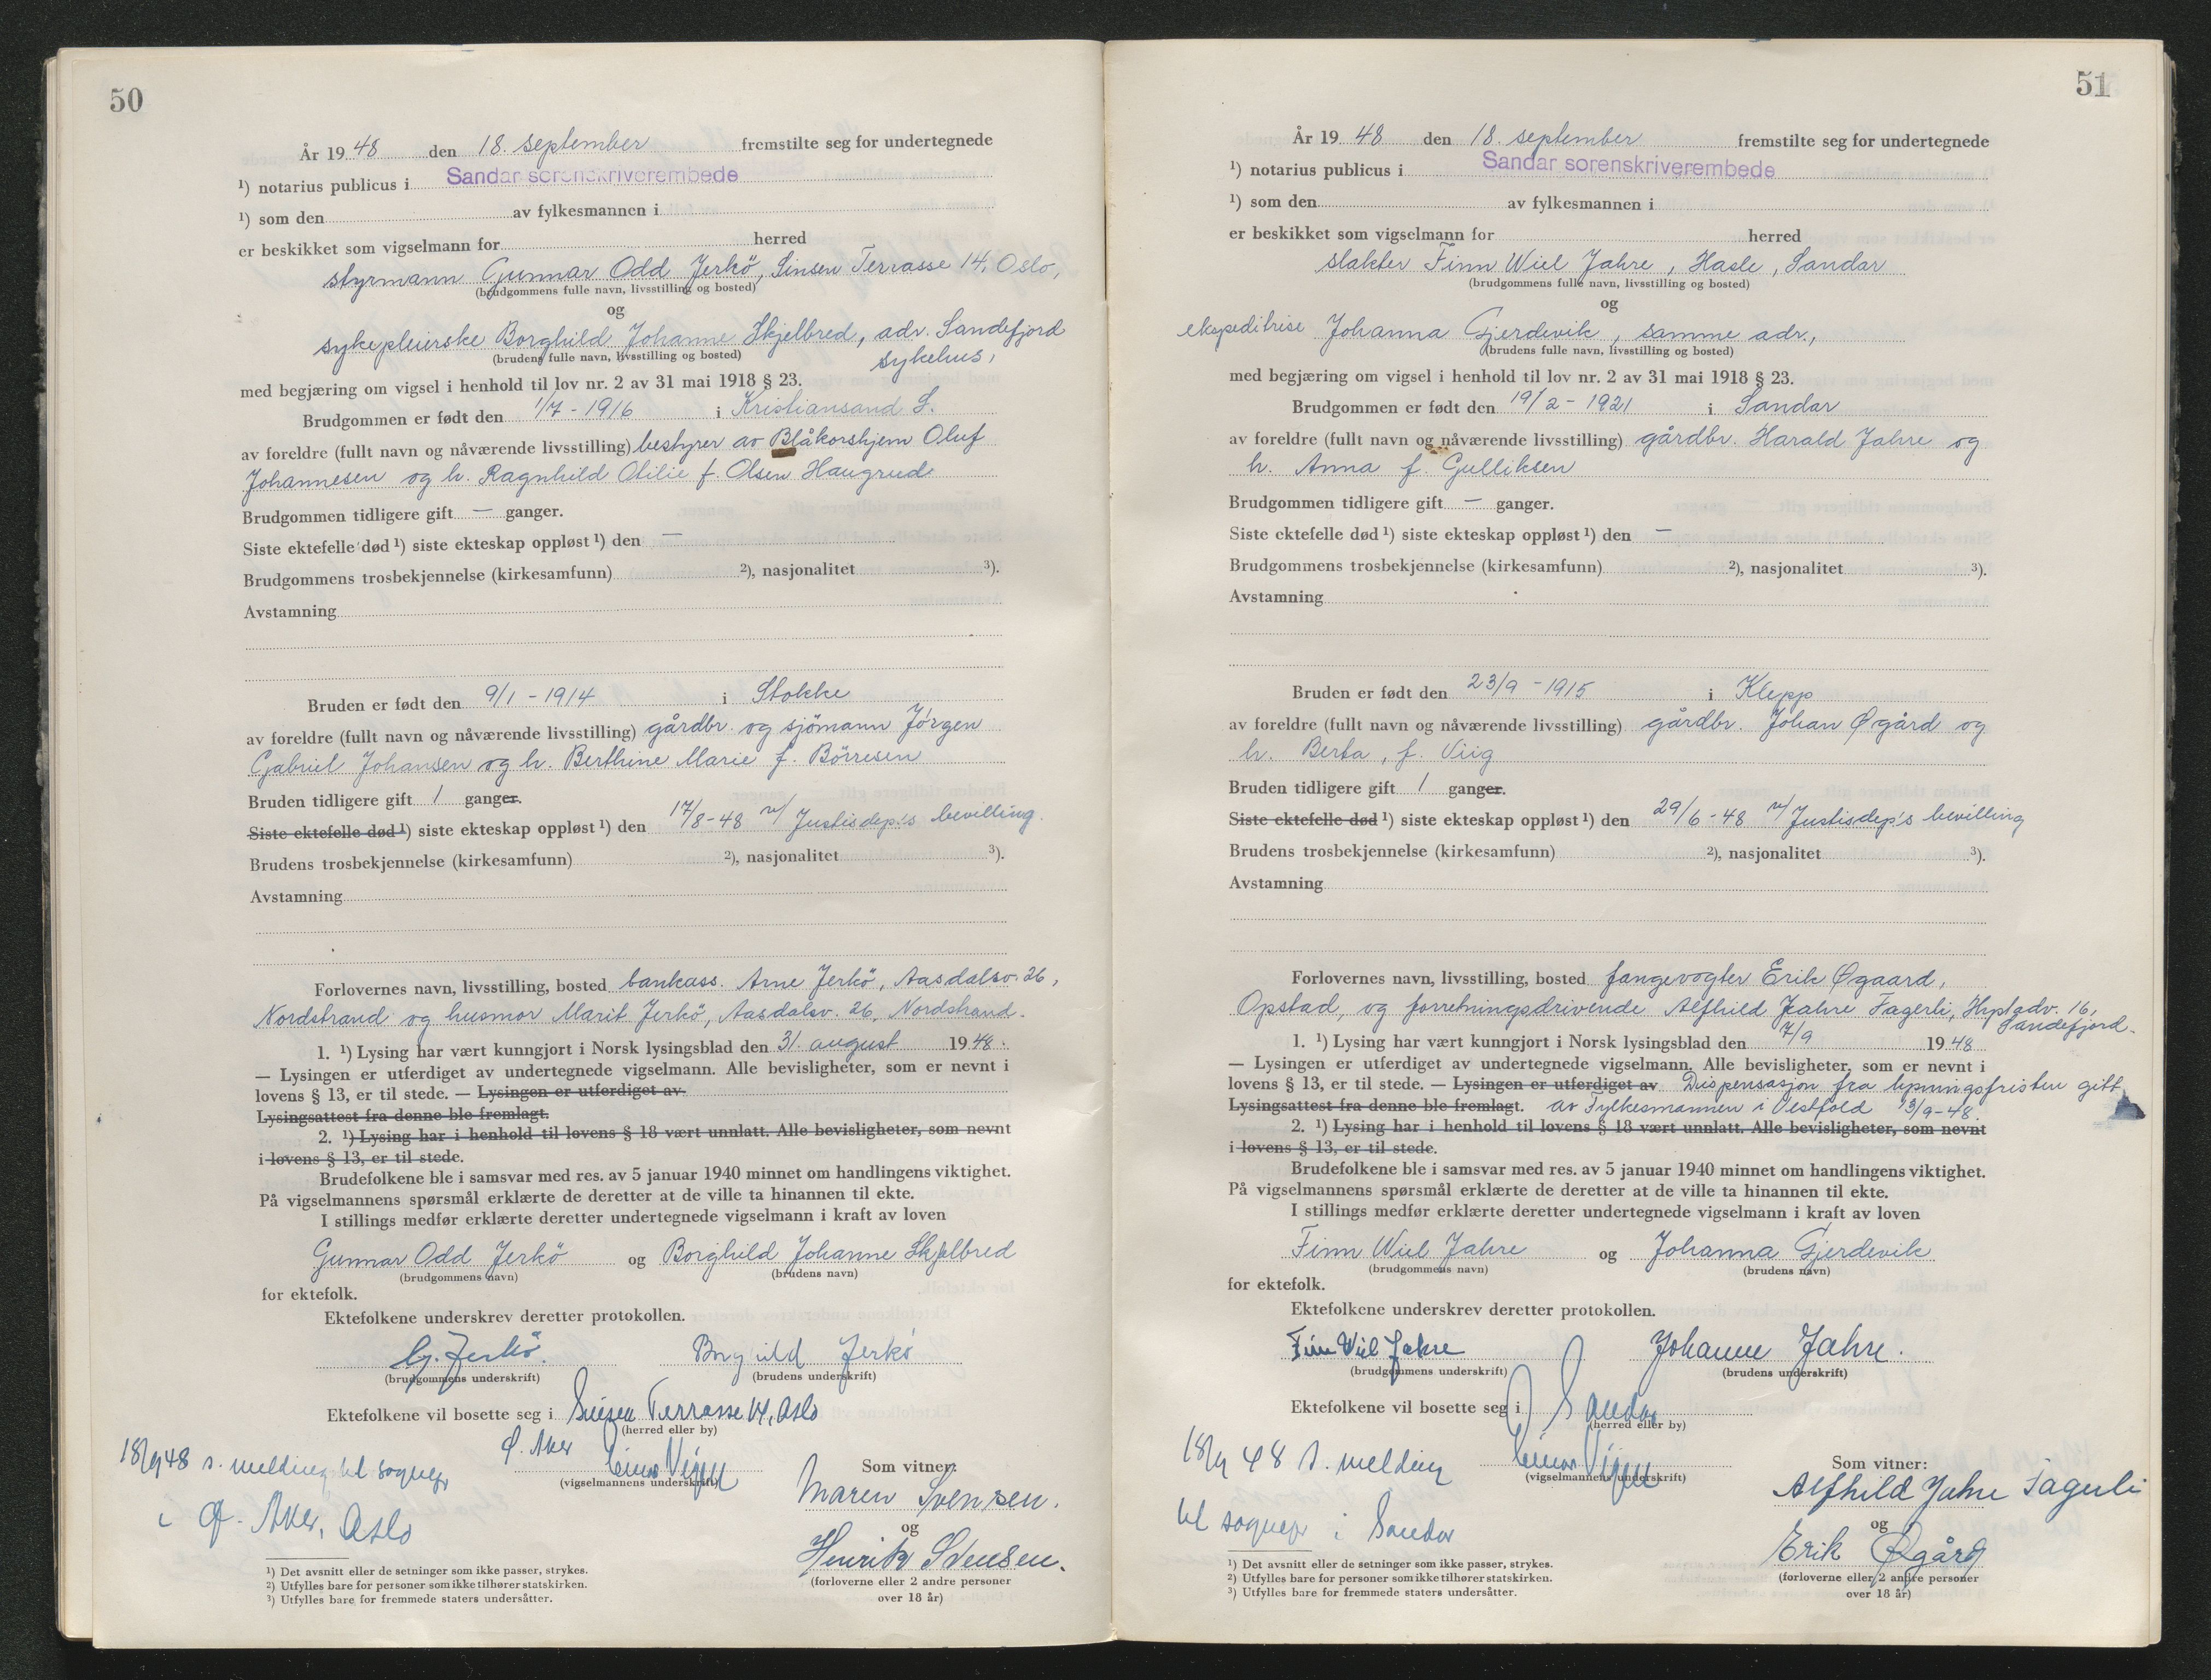 50
År 19 48 den 18. september fremstilte seg for undertegnede
¹) notarius publicus i Sandar sorenskriverembede
¹) som den av fylkesmannen i
er beskikket som vigselmann for herred
styrmann Gunnar Odd Jerkö, Sinsen Terrasse 14, Oslo,
(brudgommens fulle navn, livsstilling og bosted)
og
sykepleierske Borghild Johanne Skjelbred, adr. Sandefjord
(brudens fulle navn, livsstilling og bosted) sykehus,
med begjæring om vigsel i henhold til lov nr. 2 av 31 mai 1918 § 23.
Brudgommen er født den 1/7 - 1916 i Kristiansand S.
av foreldre (fullt navn og nåværende livsstilling) bestyrer av Blåkorshjem Oluf
Johannesen og h. Ragnhild Otilie f. Olsen Haugrud
Brudgommen tidligere gift — ganger.
Siste ektefelle død ¹) siste ekteskap oppløst ¹) den —
Brudgommens trosbekjennelse (kirkesamfunn) ²), nasjonalitet ³).
Avstamning
Bruden er født den 9/1 - 1914 i Stokke
av foreldre (fullt navn og nåværende livsstilling) gårdbr. og sjömann Jörgen
Gabriel Johansen og h. Berthine Marie f. Börresen
Bruden tidligere gift 1 ganger.
Siste ektefelle død ¹) siste ekteskap oppløst ¹) den 17/8-48 v/ Justisdep's bevilling.
Brudens trosbekjennelse (kirkesamfunn) ²), nasjonalitet ³).
Avstamning
Forlovernes navn, livsstilling, bosted bankass. Arne Jerkö, Aasdalsv. 26,
Nordstrand og husmor Marit Jerkö, Aasdalsv. 26, Nordstrand.
1. ¹) Lysing har vært kunngjort i Norsk lysingsblad den 31. august 19 48.
— Lysingen er utferdiget av undertegnede vigselmann. Alle bevisligheter, som er nevnt i
lovens § 13, er til stede. — Lysingen er utferdiget av
Lysingsattest fra denne ble fremlagt.
2. ¹) Lysing har i henhold til lovens § 18 vært unnlatt. Alle bevisligheter, som nevnt
i lovens § 13, er til stede.
Brudefolkene ble i samsvar med res. av 5 januar 1940 minnet om handlingens viktighet.
På vigselmannens spørsmål erklærte de deretter at de ville ta hinannen til ekte.
I stillings medfør erklærte deretter undertegnede vigselmann i kraft av loven
Gunnar Odd Jerkö og Borghild Johanne Skjelbred
(brudgommens navn) (brudens navn)
for ektefolk.
Ektefolkene underskrev deretter protokollen.
G. Jerkö. Borghild Jerkö
(brudgommens underskrift) (brudens underskrift)
Ektefolkene vil bosette seg i Sinsen Terrasse 14, Oslo
(herred eller by)
Ø. Aker
18/9 48 s. melding til sognepr
(vigselmannens underskrift)
i Ø. Aker, Oslo
Som vitner:
Maren Svensen.
og
Henrik Svensen.
(forloverne eller 2 andre personer
over 18 år)
¹) Det avsnitt eller de setninger som ikke passer, strykes.
²) Utfylles bare for personer som ikke tilhører statskirken.
³) Utfylles bare for fremmede staters undersåtter.
51
År 19 48 den 18. september fremstilte seg for undertegnede
¹) notarius publicus i Sandar sorenskriverembede
¹) som den av fylkesmannen i
er beskikket som vigselmann for herred
slakter Finn Wiel Jahre, Hasle, Sandar
(brudgommens fulle navn, livsstilling og bosted)
og
ekspeditrise Johanna Gjerdevik, samme adr.,
(brudens fulle navn, livsstilling og bosted)
med begjæring om vigsel i henhold til lov nr. 2 av 31 mai 1918 § 23.
Brudgommen er født den 19/2 - 1921 i Sandar
av foreldre (fullt navn og nåværende livsstilling) gårdbr. Harald Jahre og
h. Anna f. Gulliksen
Brudgommen tidligere gift — ganger.
Siste ektefelle død ¹) siste ekteskap oppløst ¹) den —
Brudgommens trosbekjennelse (kirkesamfunn) ²), nasjonalitet ³).
Avstamning
Bruden er født den 23/9 - 1915 i Klepp
av foreldre (fullt navn og nåværende livsstilling) gårdbr. Johan Øgård og
h. Berta, f. Viig
Bruden tidligere gift 1 ganger.
Siste ektefelle død ¹) siste ekteskap oppløst ¹) den 29/6 - 48 v/ Justisdep's bevilling
Brudens trosbekjennelse (kirkesamfunn) ²), nasjonalitet ³).
Avstamning
Forlovernes navn, livsstilling, bosted fangevogter Erik Øgaard,
Opstad, og forretningsdrivende Alfhild Jahre Fagerli, Hystadv. 16,
Sandefjord.
1. ¹) Lysing har vært kunngjort i Norsk lysingsblad den 7/9 19 48
— Lysingen er utferdiget av undertegnede vigselmann. Alle bevisligheter, som er nevnt i
lovens § 13, er til stede. — Lysingen er utferdiget av Dispensasjon fra lysningsfristen gitt
Lysingsattest fra denne ble fremlagt. av Fylkesmannen i Vestfold 13/9-48.
2. ¹) Lysing har i henhold til lovens § 18 vært unnlatt. Alle bevisligheter, som nevnt
i lovens § 13, er til stede.
Brudefolkene ble i samsvar med res. av 5 januar 1940 minnet om handlingens viktighet.
På vigselmannens spørsmål erklærte de deretter at de ville ta hinannen til ekte.
I stillings medfør erklærte deretter undertegnede vigselmann i kraft av loven
Finn Wiel Jahre og Johanna Gjerdevik
(brudgommens navn) (brudens navn)
for ektefolk.
Ektefolkene underskrev deretter protokollen.
Finn Wiel Jahre Johanne Jahre.
(brudgommens underskrift) (brudens underskrift)
Ektefolkene vil bosette seg i Sandar
(herred eller by)
18/9 48 s. melding
(vigselmannens underskrift)
til sognepr i Sandar
Som vitner:
Alfhild Jahre Fagerli
og
Erik Øgård
(forloverne eller 2 andre personer
over 18 år)
¹) Det avsnitt eller de setninger som ikke passer, strykes.
²) Utfylles bare for personer som ikke tilhører statskirken.
³) Utfylles bare for fremmede staters undersåtter.